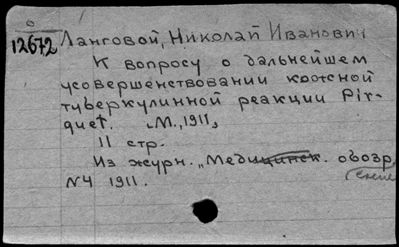 12672 Ланговой, Николай Иванович
К вопросу о дальнейшем
усовершенствовании кожной
туберкулинной реакции Pir-
quet. „М., 1911„
11 стр.
Из журн. „Медицинск. обозр.
N4 1911.